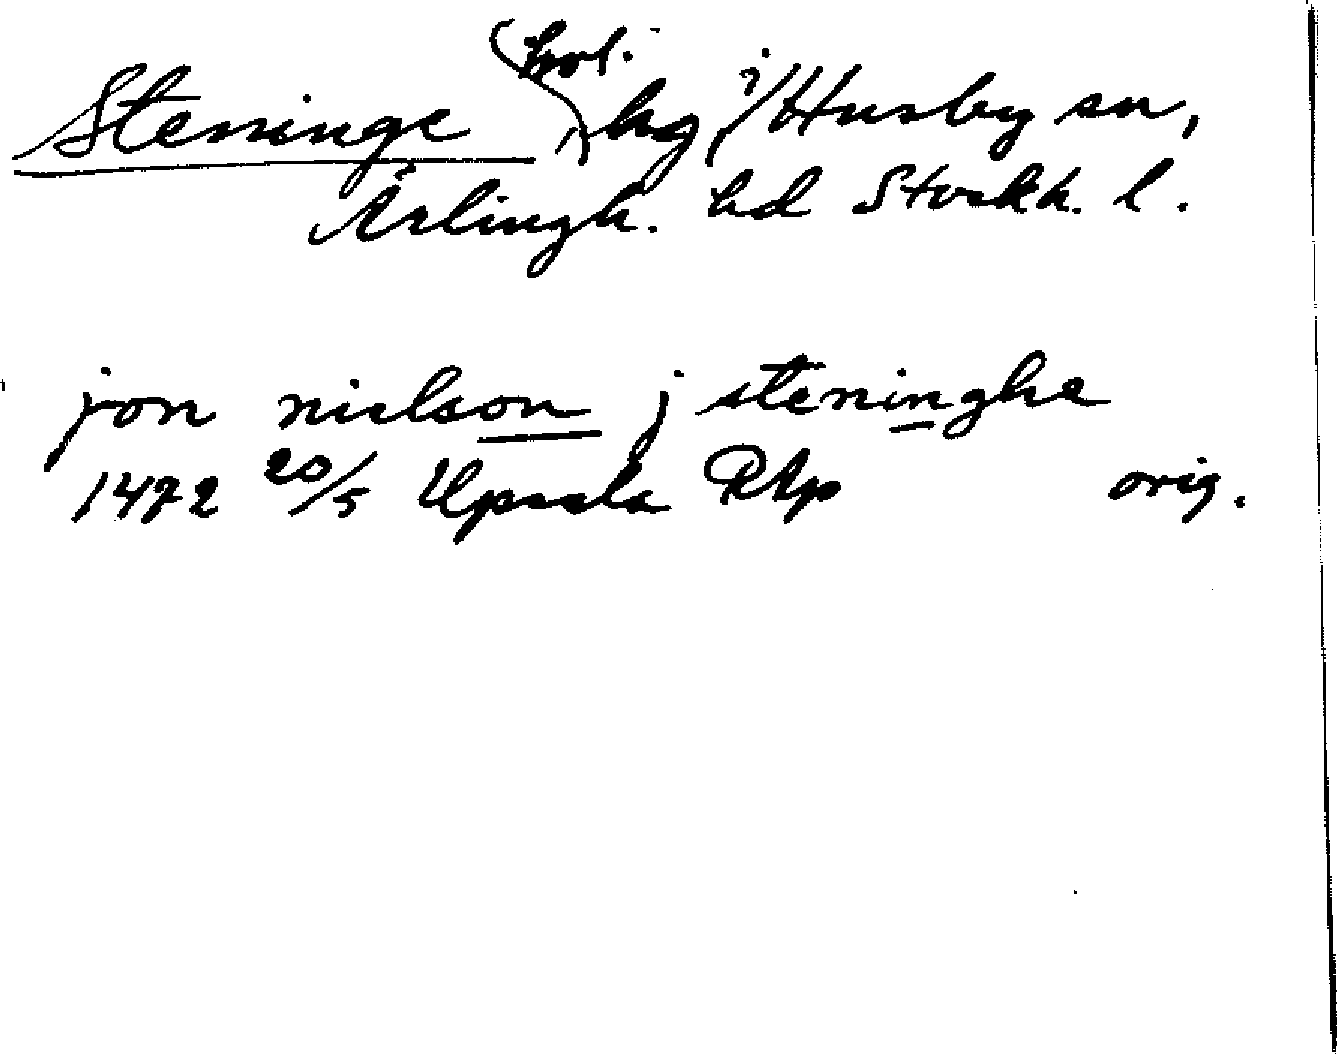 Steninge hg, i Husby sn,
Ärlingh. hd Stockh. l.
jon nielson j steninghe
1472 20/5 Upsala RAp orig.